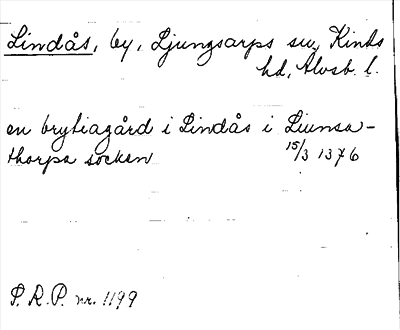 Lindås, by, Ljungsarps sn, Kinds
hd, Älvsb. l.
en brytiagård i Lindås i Liunsa-
thorpa socken 15/3 1376
P. R. P. nr. 1199